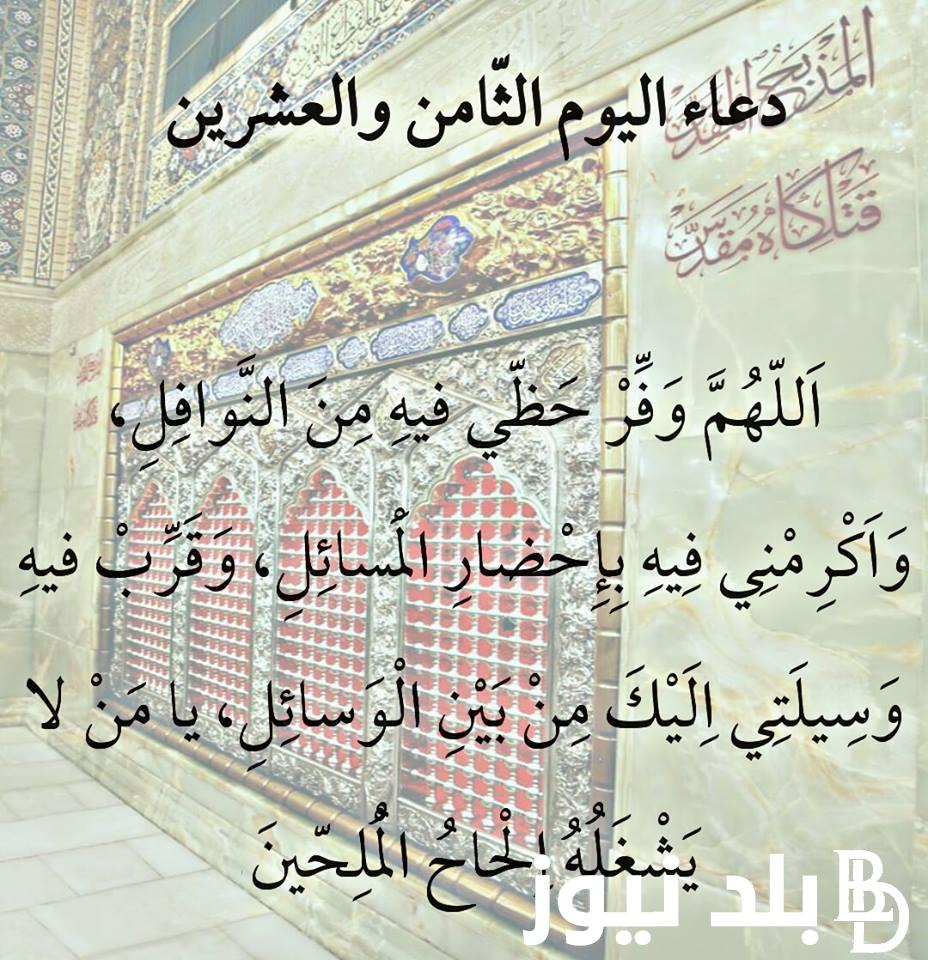 دعاء اليوم الثّامن والعشرين
المذبح المقدس
قتلگاه مقدس
اَللّهُمَّ وَفِّرْ حَظّي فيهِ مِنَ النَّوافِلِ،
وَاَكْرِمْنِي فِيهِ بِإِحْضارِ الْمَسائِلِ، وَقَرِّبْ فيهِ
وَسِيلَتِي اِلَيْكَ مِنْ بَيْنِ الْوَسائِلِ، يا مَنْ لا
يَشْغَلُهُ اِلْحاحُ الْمُلِحّينَ
بلد نيوز BD